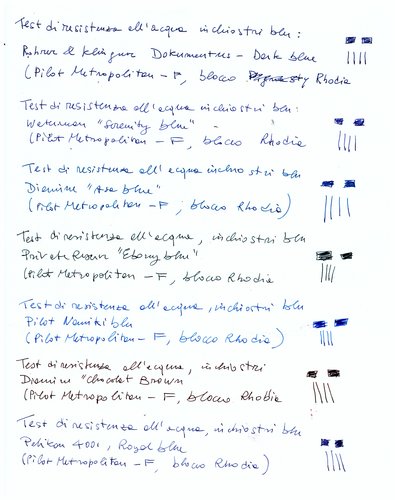 Test di resistenza all'acqua inchiostri blu:
Rohrer & Klingner Dokumentus - Dark blue
(Pilot Metropolitan - F, blocco Rhodia
Test di resistenza all'acqua inchiostri blu:
Waterman "Serenity blue" -
(Pilot Metropolitan - F, blocco Rhodia)
Test di resistenza all'acqua inchiostri blu
Diamine "Asa blue"
(Pilot Metropolitan - F, blocco Rhodia)
Test di resistenza all'acqua, inchiostri blu
Private Reserve "Ebony blue"
(Pilot Metropolitan - F, blocco Rhodia
Test di resistenza all'acqua, inchiostri blu
Pilot Namiki blu
(Pilot Metropolitan - F, blocco Rhodia)
Test di resistenza all'acqua, inchiostri
Diamine "Chocolat Brown
(Pilot Metropolitan - F, blocco Rhodia
Test di resistenza all'acqua, inchiostri blu
Pelikan 4001, Royal blue
(Pilot Metropolitan - F, blocco Rhodia)